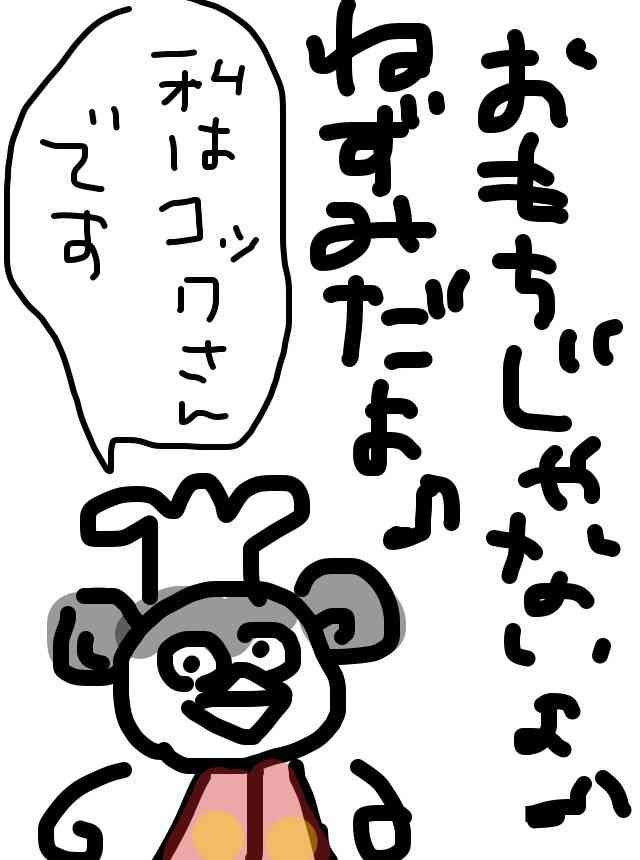 おもちじゃない♪
ねずみだよ♪
私はコックさん
です